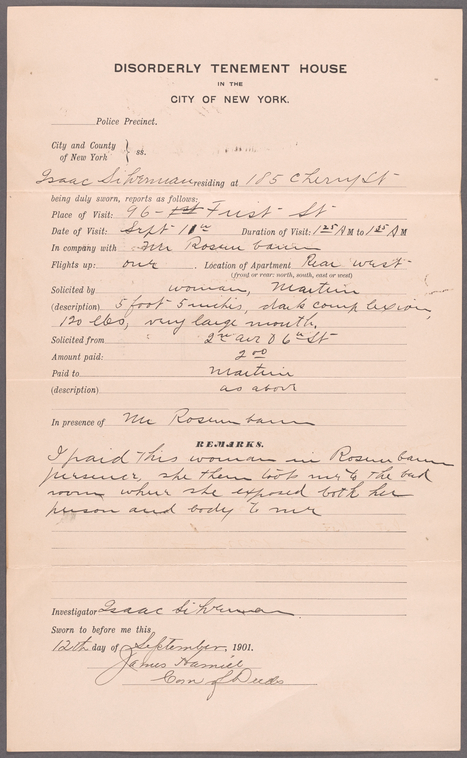 DISORDERLY TENEMENT HOUSE
IN THE
CITY OF NEW YORK.
Police Precinct.
City and County
of New York } ss.
Isaac Silverman residing at 185 Cherry St
being duly sworn, reports as follows:
Place of Visit: 96 - 1st First St
Date of Visit: Sept 11th Duration of Visit: 1 25 A M to 1 35 A M
In company with Mr Rosenbaum
Flights up: one . Location of Apartment Rear West
(front or rear: north, south, east or west)
Solicited by woman,
(description) 5 foot 5 inches, dark complexion,
120 lbs, very large mouth.
Solicited from 2nd ave & 6th St
Amount paid: 2 00
Paid to
(description) as above
In presence of Mr Rosenbaum
REMARKS.
I paid this woman in Rosenbaum
presence, she then took me to the bed
room where she exposed both her
person and body to me
Investigator Isaac Silverman
Sworn to before me this
12th day of September, 1901.
James
Com of Deeds